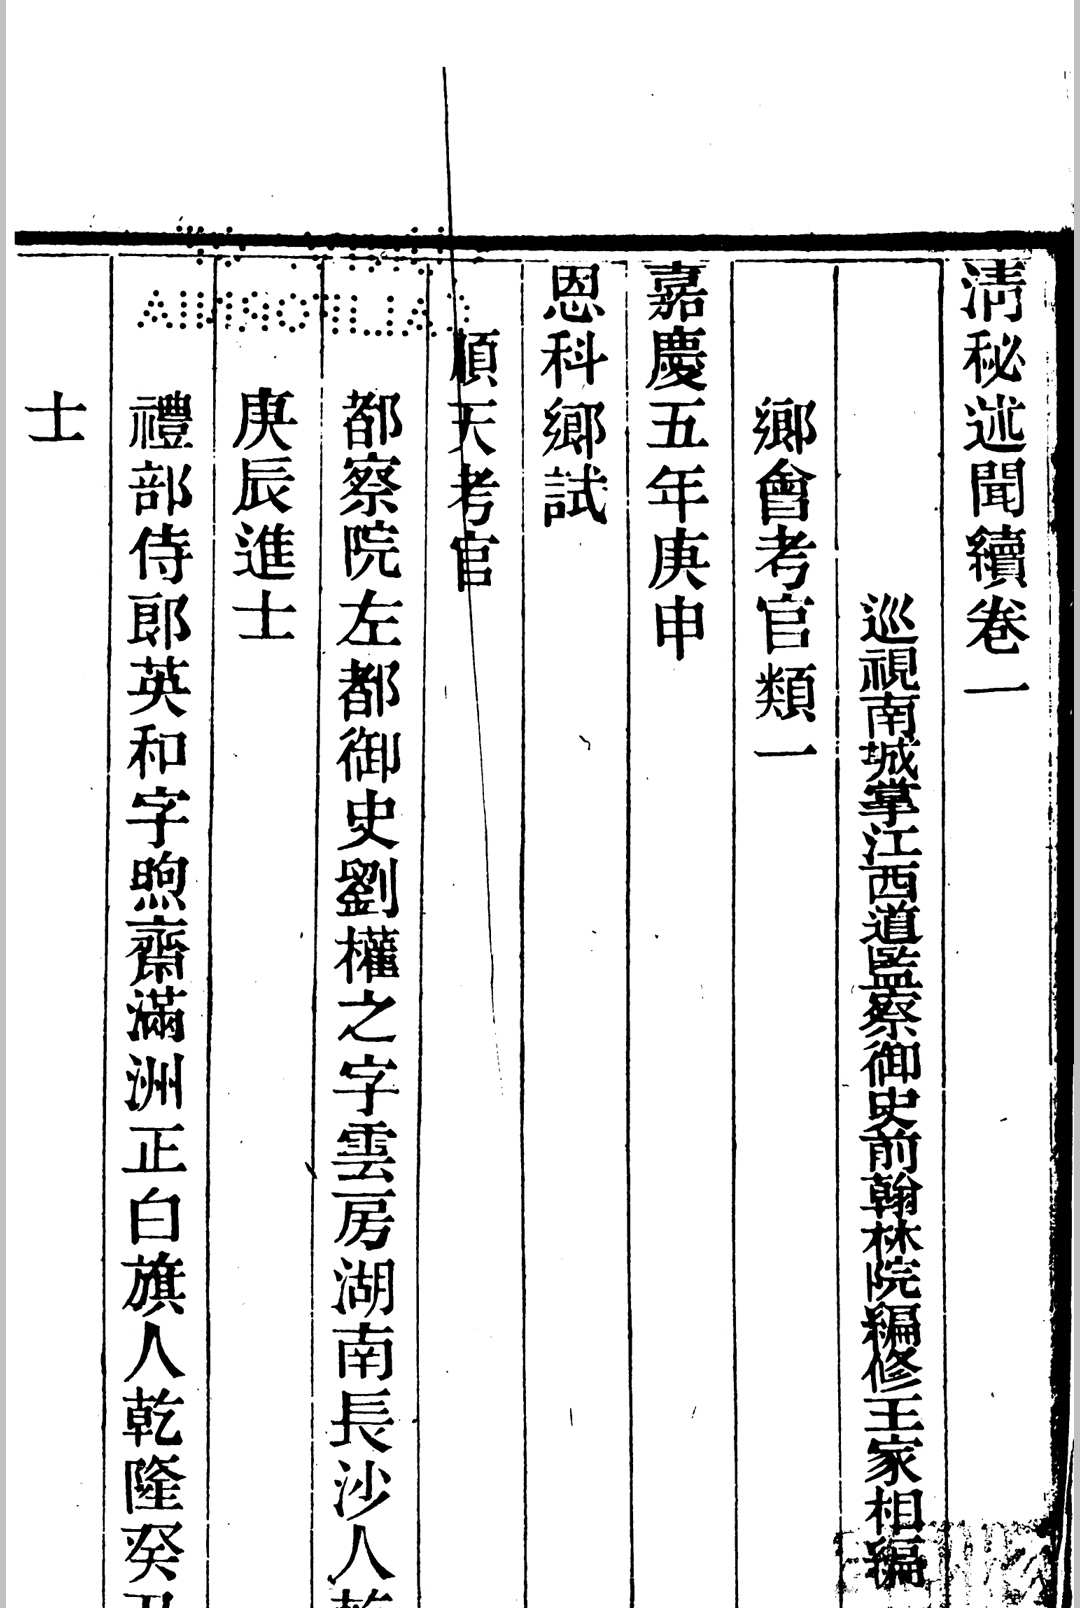 淸秘述聞續卷一
巡視南城掌江西道監察御史前翰林院編修王家相編
鄉會考官類一
嘉慶五年庚申
恩科鄉試
順天考官
都察院左都御史劉權之字雲房湖南長沙人乾
庚辰進士
禮部侍郎英和字煦齋滿洲正白旗人乾隆癸丑
士